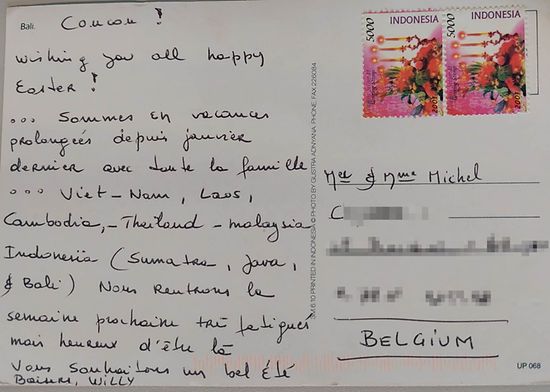 Bali.
Coucou !
wishing you all happy
Easter !
... Sommes en vacances
prolongées depuis janvier
dernier avec toute la famille
... Viet-Nam, Laos,
Cambodia, - Thailand - malaysia
Indonesia (Sumatra, Java,
& Bali) Nous rentrons la
semaine prochaine très fatigués
mais heureux d'être là
Vous souhaitons un bel été
WILLY
PRINTED IN INDONESIA © PHOTO BY GUSTRA ADNYANA. PHONE. FAX 226084
5000 INDONESIA
5000 INDONESIA
& Mme Michel
BELGIUM
UP 068